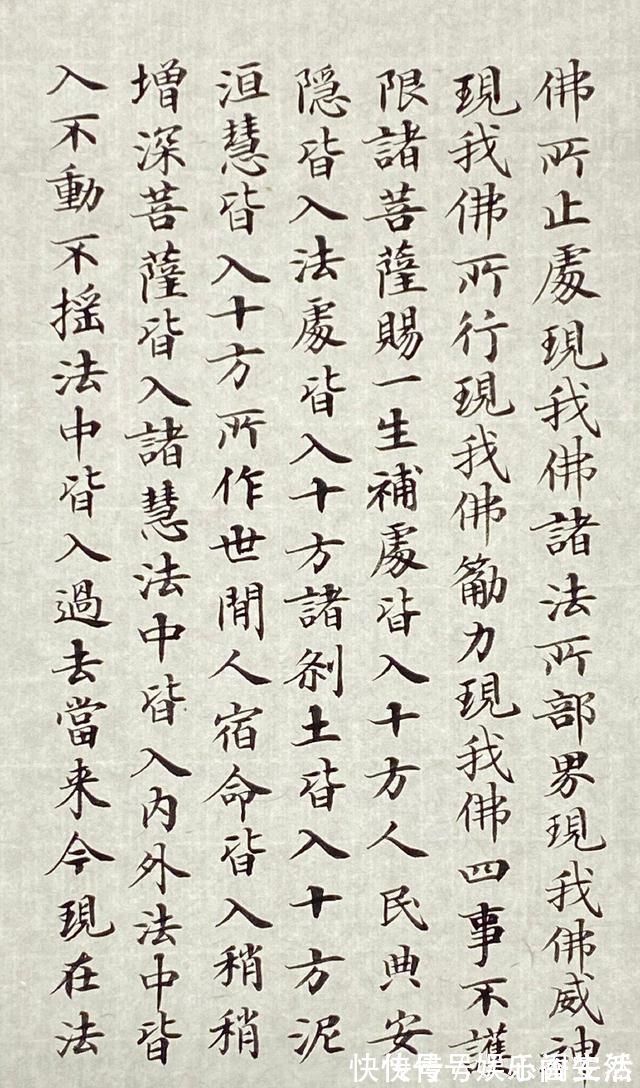 佛所止處現我佛諸法所部界現我佛威神
現我佛所行現我佛筋力現我佛四事不護
限諸菩薩賜一生補處皆入十方人民典安
隐皆入法處皆入十方諸刹土皆入十方泥
洹慧皆入十方所作世間人宿命皆入稍稍
增深菩薩皆入諸慧法中皆入内外法中皆
入不動不揺法中皆入過去當来今現在法